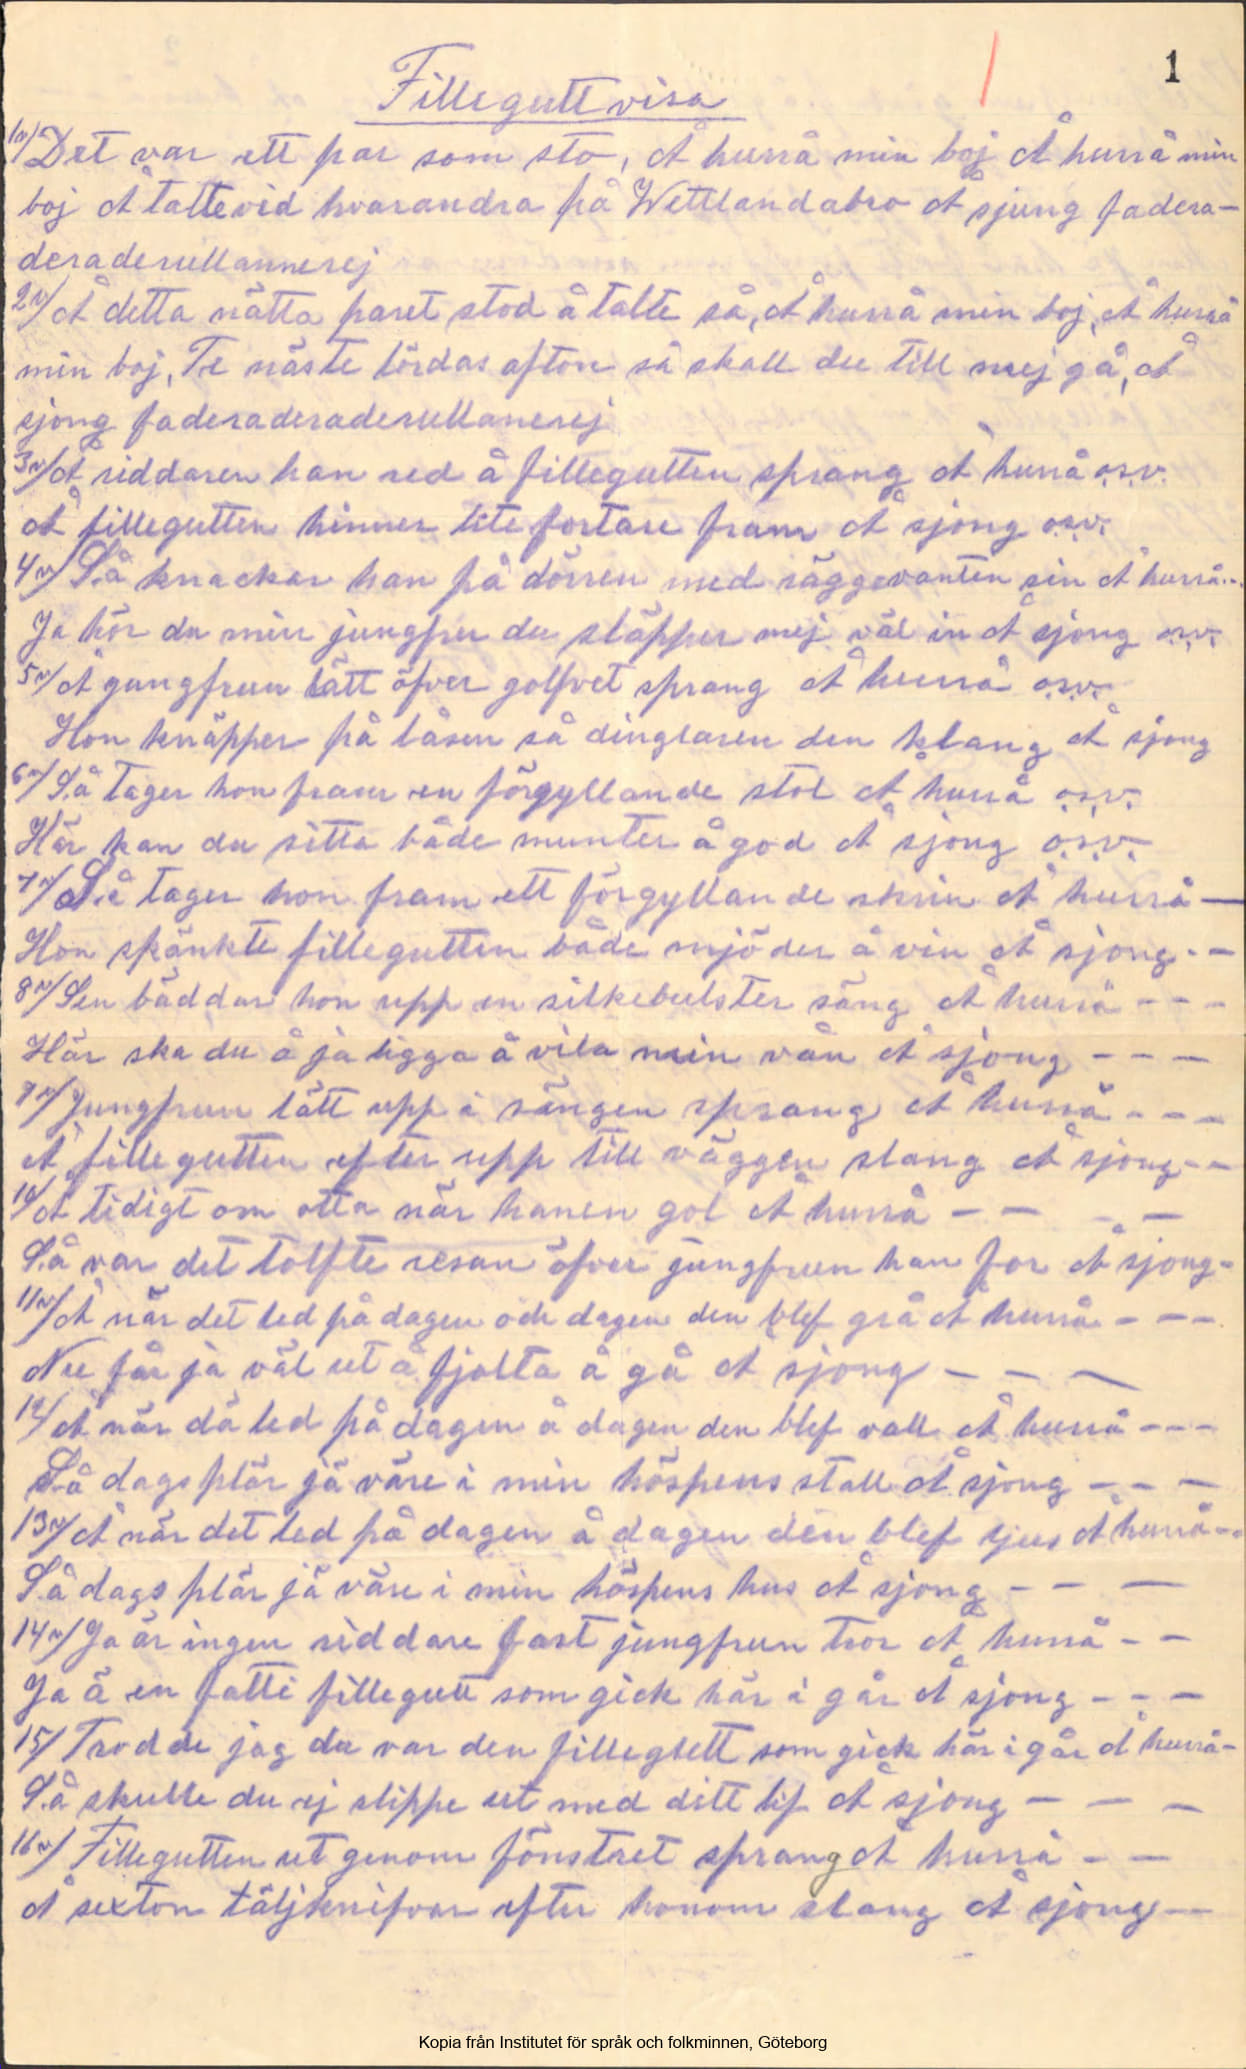 1
Fillegutt visa
1v/ Det var ett par som sto, Å hurrå min boj Å hurrå min
boj Å talte vid hvarandra på Wettlandabro Å sjung fadera-
deraderullannerej
2v/ Å detta nätta paret stod å talte så, Å hurrå min boj, Å hurrå
min boj, Te näste lördas afton så skall du till mej gå, Å
sjong faderaderaderullanerej
3v/ Å riddaren han red å fillegutten sprang Å hurrå o.s.v.
Å fillegutten hinner lite fortare fram Å sjong o.s.v.
4v/ Så knackar han på dörren med räggevanten sin Å hurrå...
Ja hör du min jungfru du släpper mej väl in Å sjong o.s.v.
5v/ Å gungfrun lätt öfver golfvet sprang Å hurrå o.s.v.
Hon knäpper på låsen så dinglaren den klang Å sjong
6v/ Så tager hon fram en förgyllande stol Å hurrå o.s.v.
Här kan du sitta både munter å god Å sjong o.s.v.
7v/ Så tager hon fram ett förgyllande skrin Å hurrå —
Hon skänkte fillegutten både mjöder å vin Å sjong - —
8v/ Sen bäddar hon upp en silkebulster säng Å hurrå - - -
Här ska du å jä ligga å vila min vän Å sjong - - —
9v/ Jungfrun lätt upp i sängen sprang Å hurrå - - -
Å fillegutten efter upp till väggen slang Å sjong - -
10/ Å tidigt om otta när hanen gol Å hurrå — — - —
Så var det tolfte resan öfver jungfrun han for Å sjong -
11v/ Å när det led på dagen och dagen den blef grå Å hurrå - - -
Nu får jä väl ut å fjolta å gå Å sjong — — —
12/ Å när dä led på dagen å dagen den blef vall Å hurrå - - -
Så dags plär jä väre i min höspens stall Å sjong - - —
13v/ Å när det led på dagen å dagen den blef ljus Å hurrå - -
Så dags plär jä väre i min höspens hus Å sjong - — —
14v/ Ja är ingen riddare fast jungfrun tror Å hurrå - —
Ja ä en fatti fillegutt som gick här i går Å sjong - - —
15/ Trodde jag du var den fillegutt som gick här i går Å hurrå -
Så skulle du ej slippe ut med ditt lif Å sjong — — —
16v/ Fillegutten ut genom fönstret sprang Å hurrå - —
Å sexton täljknifvar efter honom slang Å sjong —
Kopia från Institutet för språk och folkminnen, Göteborg